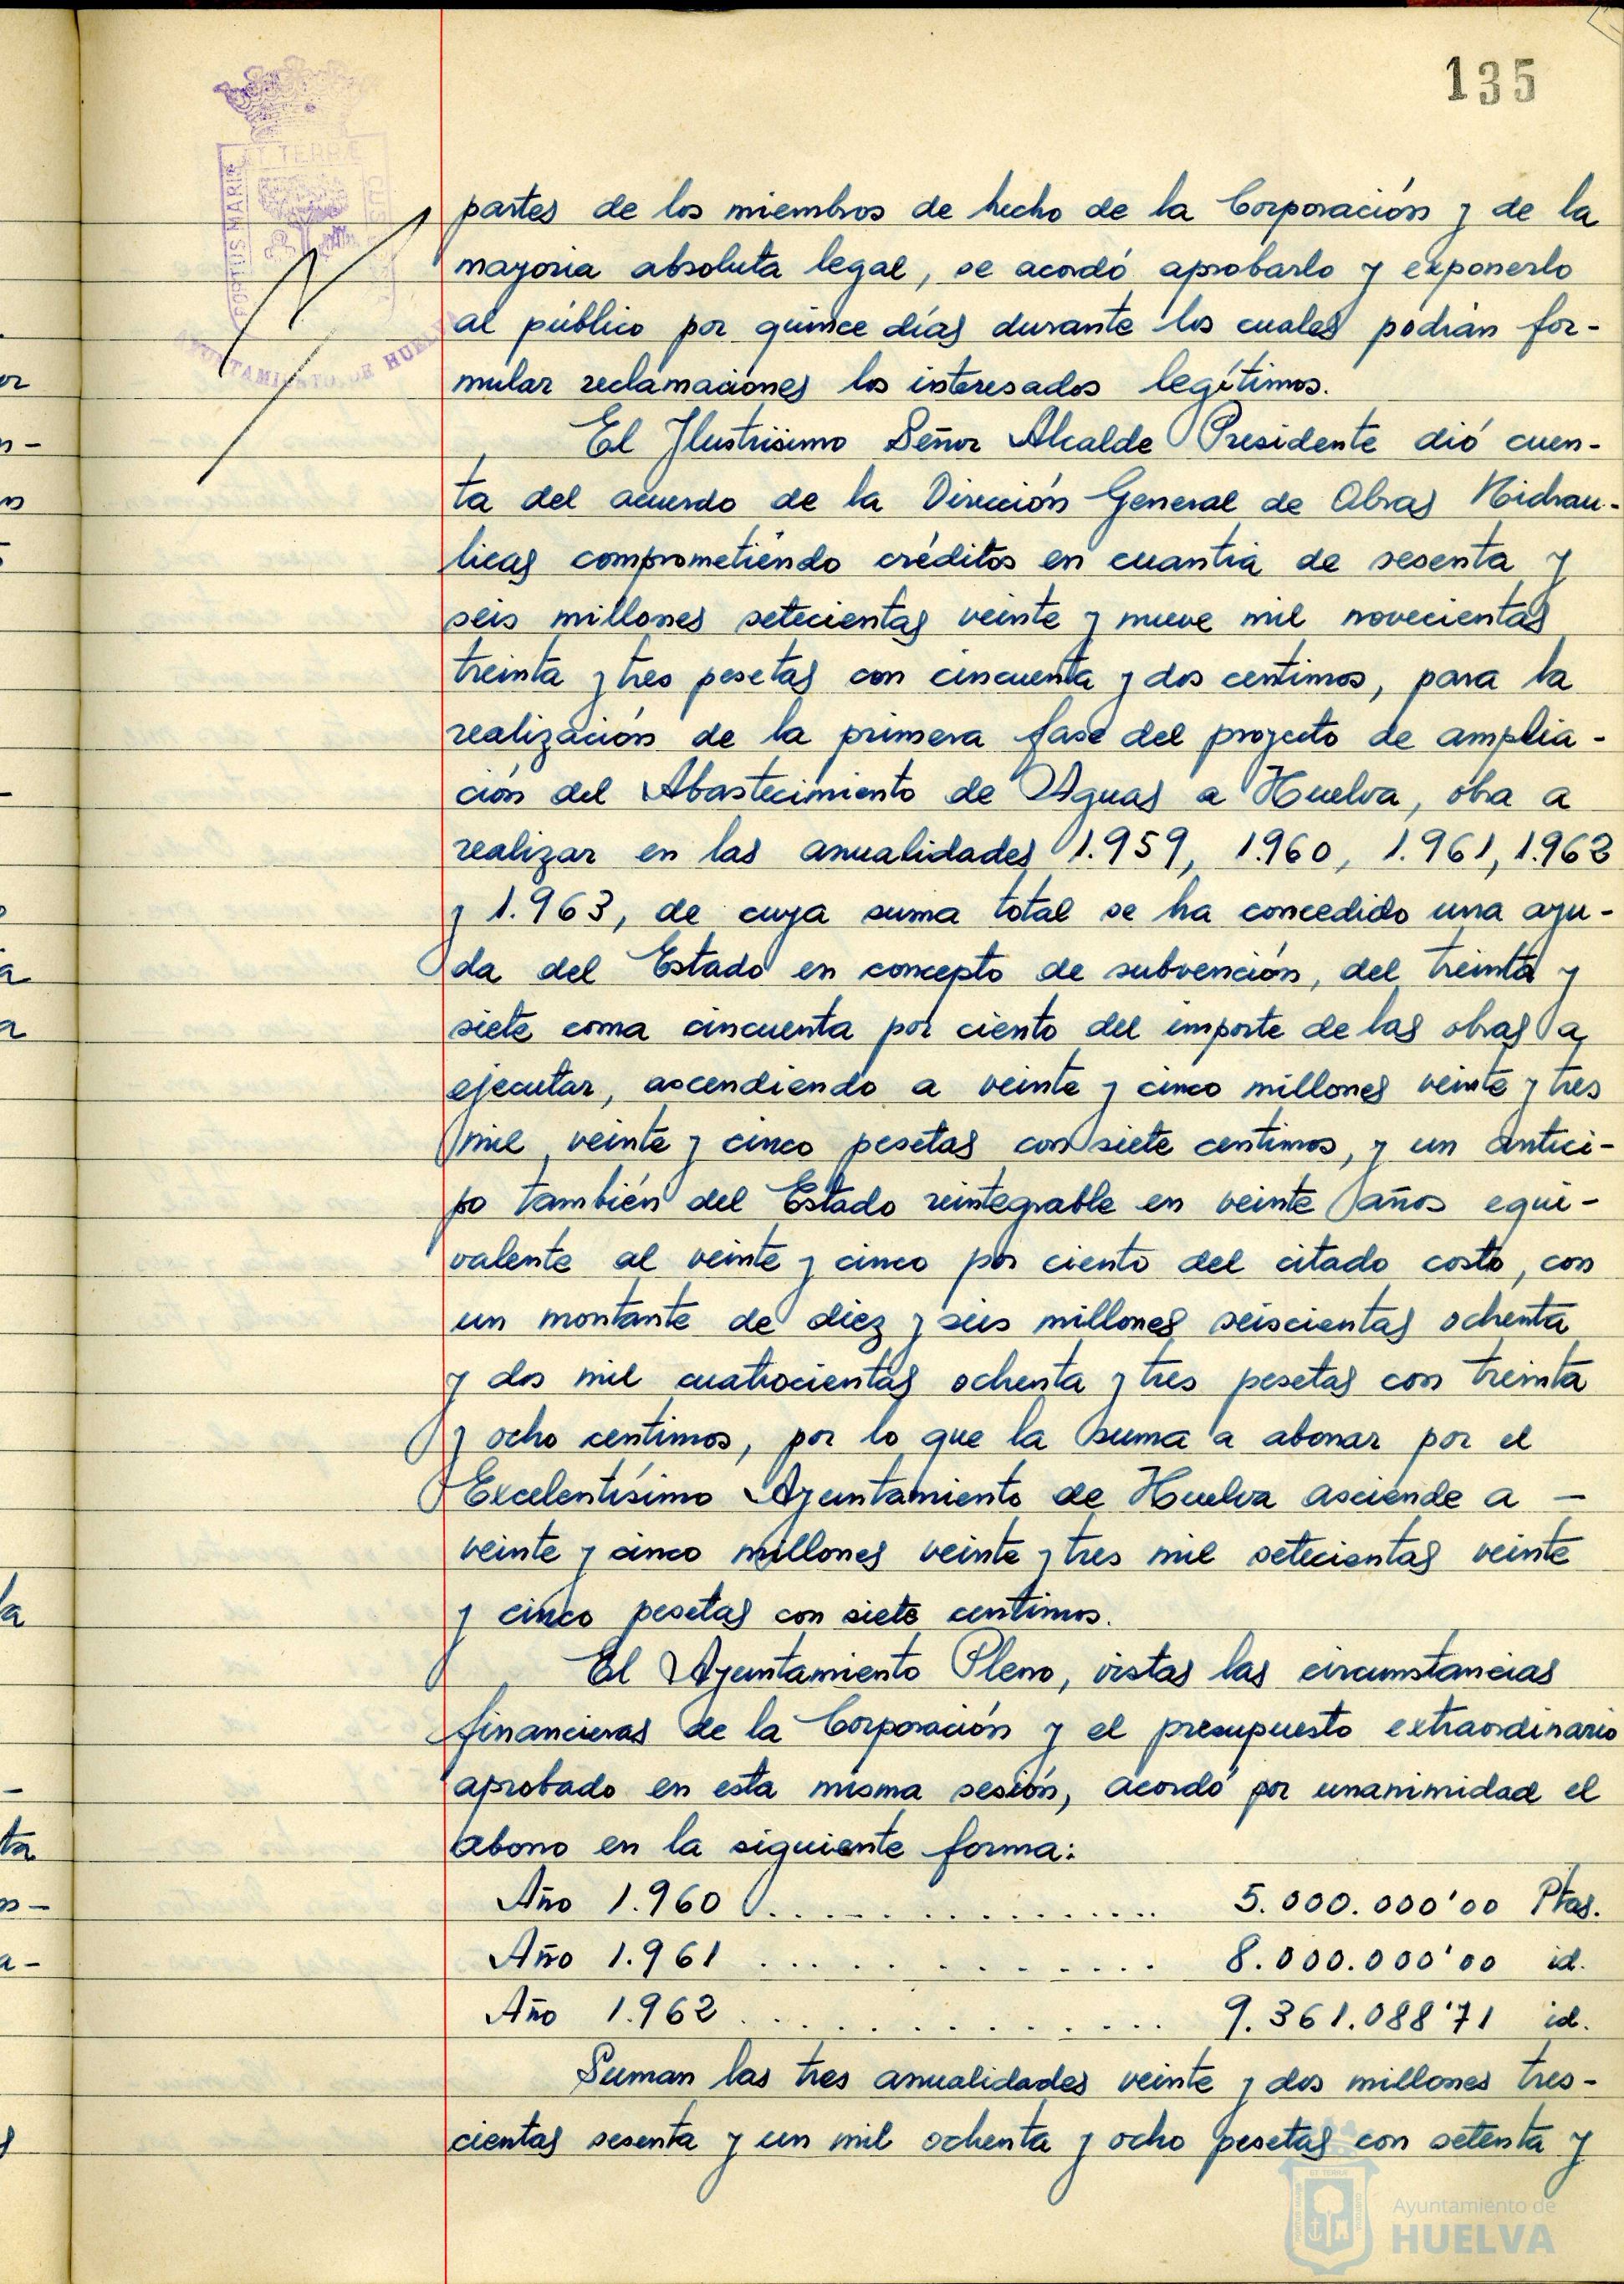 135
ET TERRÆ
PORTUS MARIS
AYUNTAMIENTO DE HUELVA
partes de los miembros de hecho de la Corporación y de la
mayoria absoluta legal, se acordó aprobarlo y exponerlo
al público por quince días durante los cuales podrian for-
mular reclamaciones los interesados legítimos.
El Ilustrisimo Señor Alcalde Presidente dió cuen-
ta del acuerdo de la Dirección General de Obras Hidrau-
licas comprometiendo créditos en cuantia de sesenta y
seis millones setecientas veinte y nueve mil novecientas
treinta y tres pesetas con cincuenta y dos centimos, para la
realización de la primera fase del proyecto de amplia-
ción del Abastecimiento de Aguas a Huelva, obra a
realizar en las anualidades 1.959, 1.960, 1.961, 1.962
y 1.963, de cuya suma total se ha concedido una ayu-
da del Estado en concepto de subvención, del treinta y
siete coma cincuenta por ciento del importe de las obras a
ejecutar, ascendiendo a veinte y cinco millones veinte y tres
mil, veinte y cinco pesetas con siete centimos, y un antici-
po también del Estado reintegrable en veinte años equi-
valente al veinte y cinco por ciento del citado costo, con
un montante de diez y seis millones seiscientas ochenta
y dos mil cuatrocientas ochenta y tres pesetas con treinta
y ocho centimos, por lo que la suma a abonar por el
Excelentísimo Ayuntamiento de Huelva asciende a -
veinte y cinco millones veinte y tres mil setecientas veinte
y cinco pesetas con siete centimos.
El Ayuntamiento Pleno, vistas las circunstancias
financieras de la Corporación y el presupuesto extraordinario
aprobado en esta misma sesión, acordó por unanimidad el
abono en la siguiente forma:
Año 1.960 ............... 5.000.000'00 Ptas.
Año 1.961 ............... 8.000.000'00 id.
Año 1.962 ............... 9.361.088'71 id.
Suman las tres anualidades veinte y dos millones tres-
cientas sesenta y un mil ochenta y ocho pesetas con setenta y
Ayuntamiento de
HUELVA